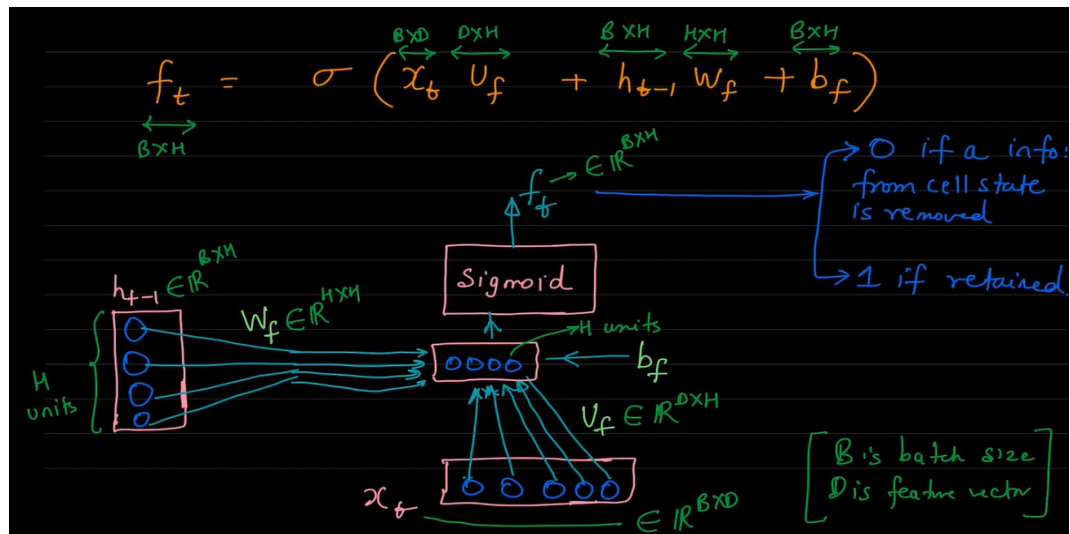 B×D D×H B×H H×H B×H
f_t = σ ( x_t U_f + h_{t-1} W_f + b_f )
B×H
f_t → ∈ ℝ^{B×H}
→ 0 if a info:
from cell state
is removed
→ 1 if retained.
Sigmoid
h_{t-1} ∈ ℝ^{B×H}
W_f ∈ ℝ^{H×H}
→ H units
b_f
H
units
U_f ∈ ℝ^{D×H}
x_t
∈ ℝ^{B×D}
[ B is batch size
D is feature vector ]